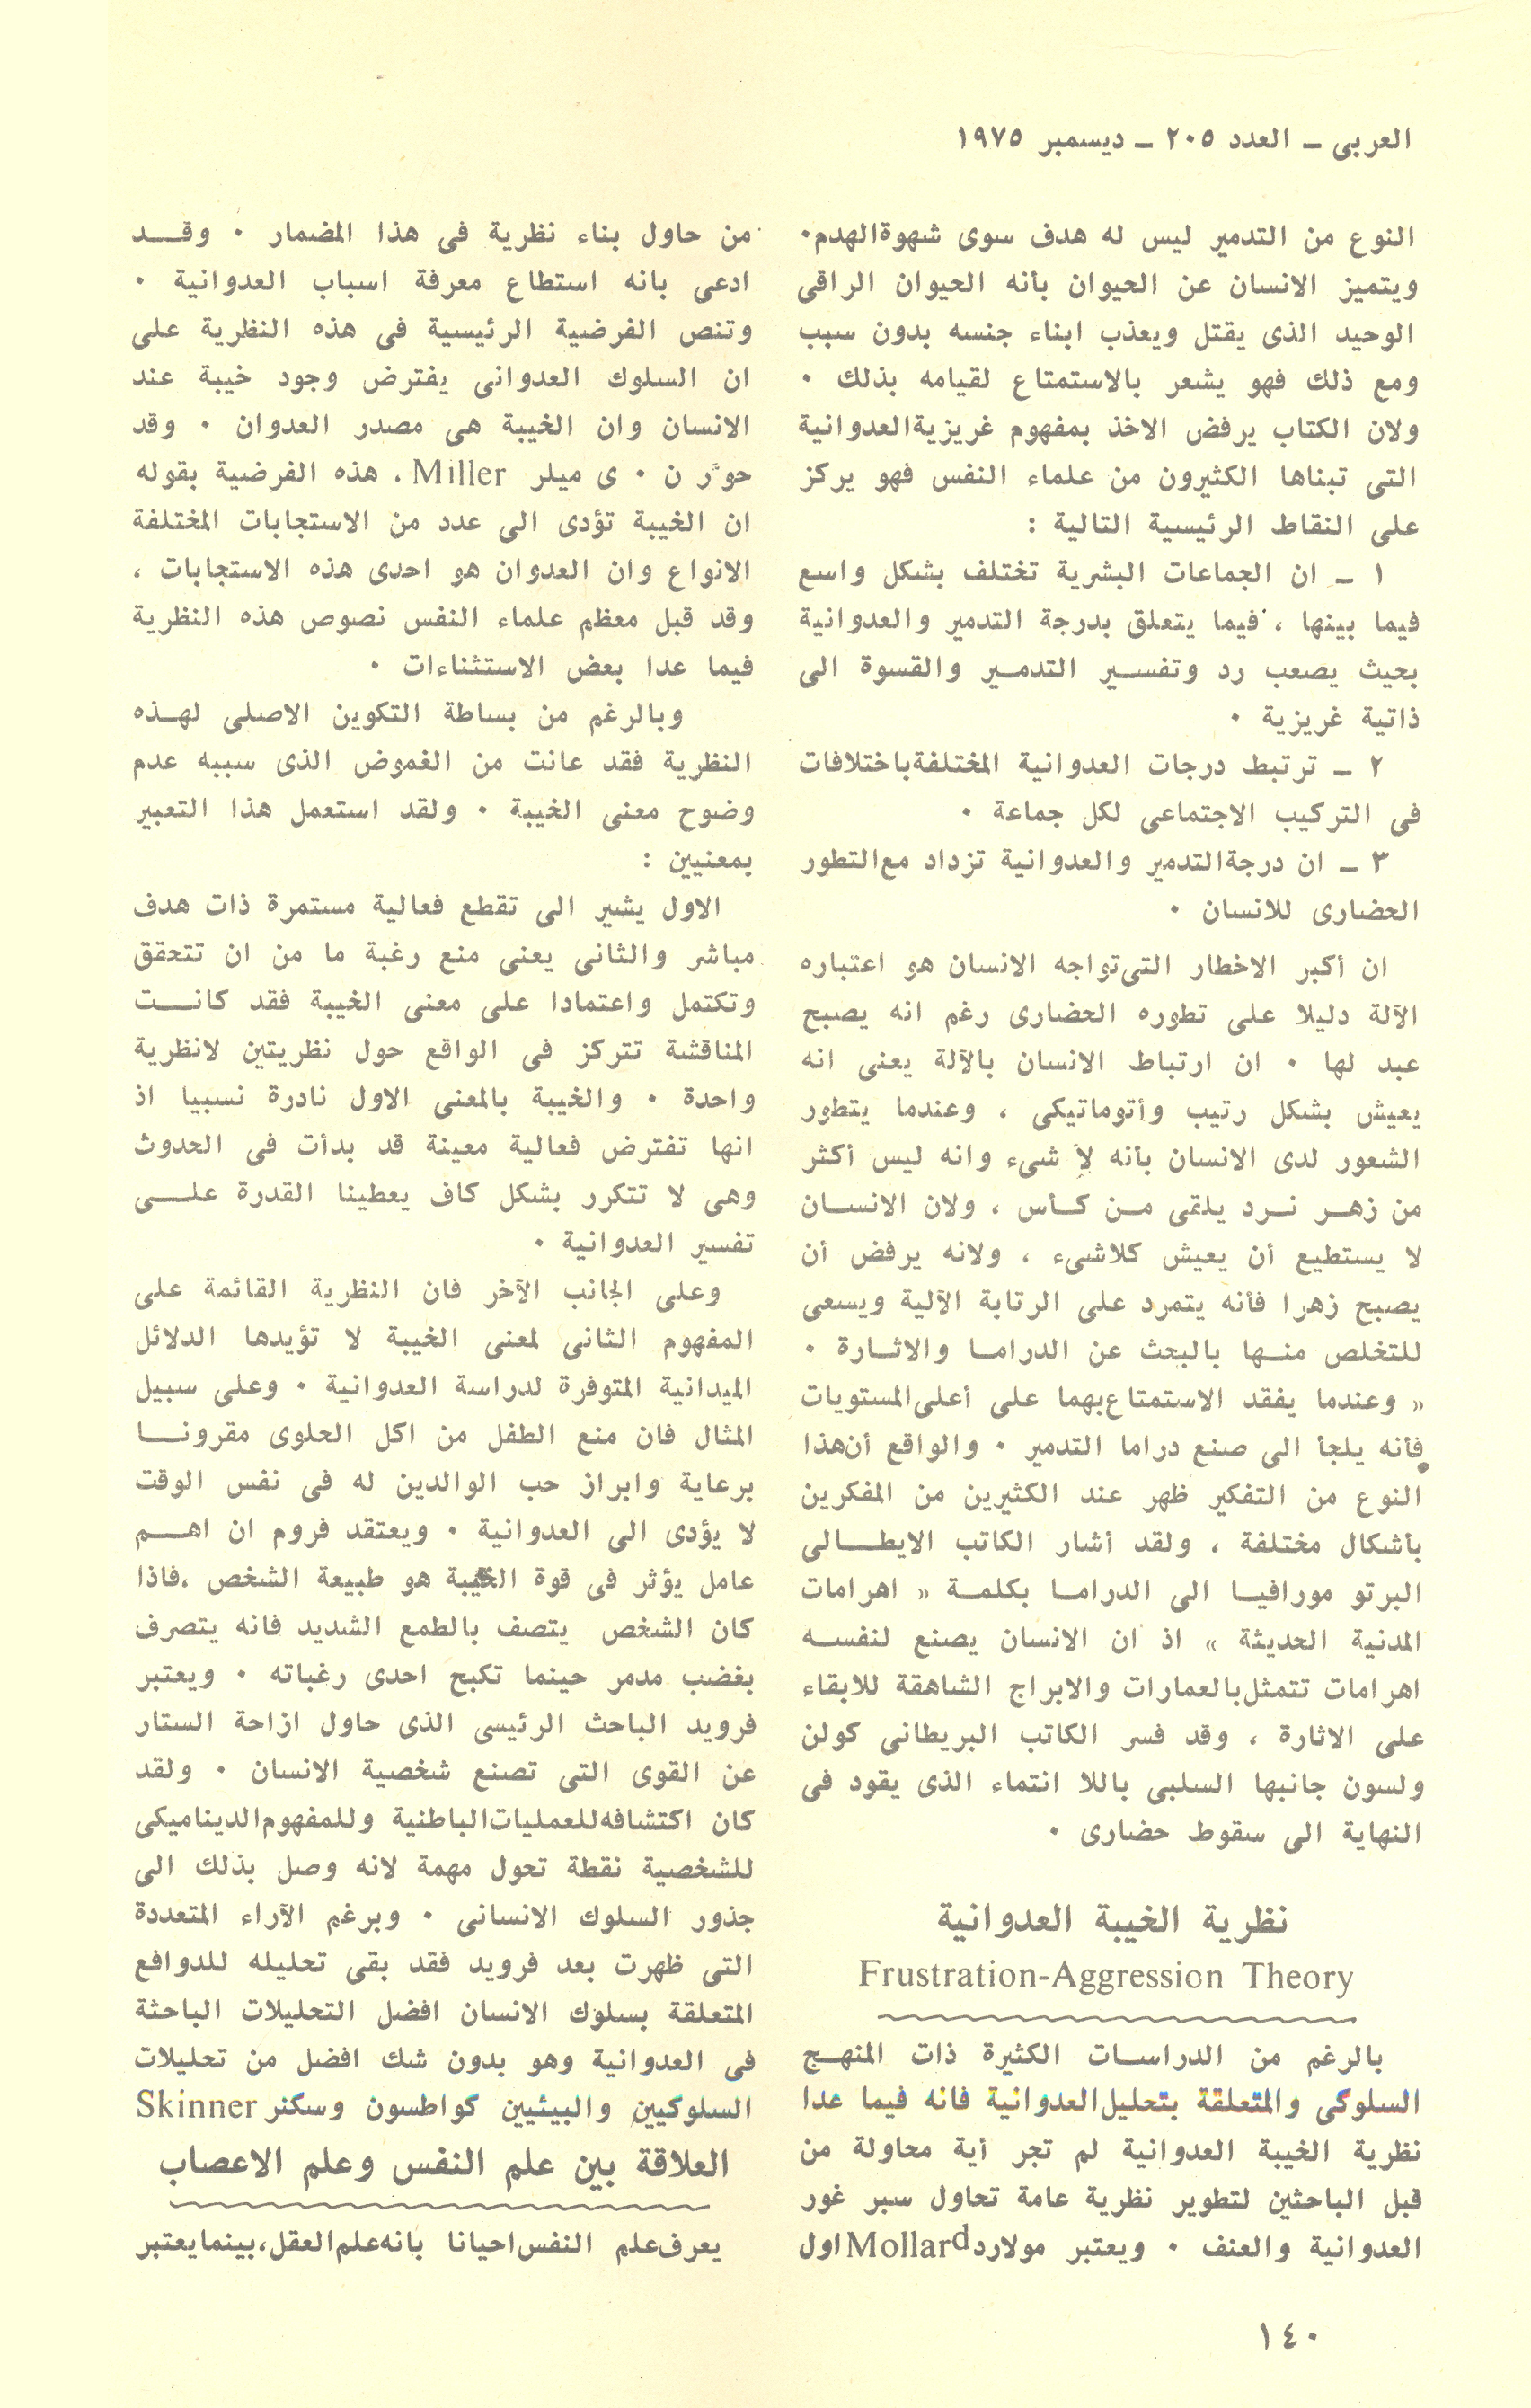 العربى ــ العدد ٢٠٥ ــ ديسمبر ١٩٧٥
النوع من التدمير ليس له هدف سوى شهوة الهدم٠
ويتميز الانسان عن الحيوان بأنه الحيوان الراقى
الوحيد الذى يقتل ويعذب ابناء جنسه بدون سبب
ومع ذلك فهو يشعر بالاستمتاع لقيامه بذلك ٠
ولان الكتاب يرفض الاخذ بمفهوم غريزية العدوانية
التى تبناها الكثيرون من علماء النفس فهو يركز
على النقاط الرئيسية التالية :
١ ــ ان الجماعات البشرية تختلف بشكل واسع
فيما بينها ، فيما يتعلق بدرجة التدمير والعدوانية
بحيث يصعب رد وتفسير التدمير والقسوة الى
ذاتية غريزية ٠
٢ ــ ترتبط درجات العدوانية المختلفة باختلافات
فى التركيب الاجتماعى لكل جماعة ٠
٣ ــ ان درجة التدمير والعدوانية تزداد مع التطور
الحضارى للانسان ٠
ان أكبر الاخطار التى تواجه الانسان هو اعتباره
الآلة دليلا على تطوره الحضارى رغم انه يصبح
عبد لها ٠ ان ارتباط الانسان بالآلة يعنى انه
يعيش بشكل رتيب وأتوماتيكى ، وعندما يتطور
الشعور لدى الانسان بأنه لا شىء وانه ليس أكثر
من زهر نرد يلقى من كأس ، ولان الانسان
لا يستطيع أن يعيش كلاشىء ، ولانه يرفض أن
يصبح زهرا فأنه يتمرد على الرتابة الآلية ويسعى
للتخلص منها بالبحث عن الدراما والاثارة ٠
« وعندما يفقد الاستمتاع بهما على أعلى المستويات
فأنه يلجأ الى صنع دراما التدمير ٠ والواقع أن هذا
النوع من التفكير ظهر عند الكثيرين من المفكرين
بأشكال مختلفة ، ولقد أشار الكاتب الايطالى
البرتو مورافيا الى الدراما بكلمة « اهرامات
المدنية الحديثة » اذ ان الانسان يصنع لنفسه
اهرامات تتمثل بالعمارات والابراج الشاهقة للابقاء
على الاثارة ، وقد فسر الكاتب البريطانى كولن
ولسون جانبها السلبى باللا انتماء الذى يقود فى
النهاية الى سقوط حضارى ٠
نظرية الخيبة العدوانية
Frustration-Aggression Theory
بالرغم من الدراسات الكثيرة ذات المنهج
السلوكى والمتعلقة بتحليل العدوانية فانه فيما عدا
نظرية الخيبة العدوانية لم تجر أية محاولة من
قبل الباحثين لتطوير نظرية عامة تحاول سبر غور
العدوانية والعنف ٠ ويعتبر مولارد Mollard اول
من حاول بناء نظرية فى هذا المضمار ٠ وقد
ادعى بانه استطاع معرفة اسباب العدوانية ٠
وتنص الفرضية الرئيسية فى هذه النظرية على
ان السلوك العدوانى يفترض وجود خيبة عند
الانسان وان الخيبة هى مصدر العدوان ٠ وقد
حوّر ن ٠ ى ميلر Miller ، هذه الفرضية بقوله
ان الخيبة تؤدى الى عدد من الاستجابات المختلفة
الانواع وان العدوان هو احدى هذه الاستجابات ،
وقد قبل معظم علماء النفس نصوص هذه النظرية
فيما عدا بعض الاستثناءات ٠
وبالرغم من بساطة التكوين الاصلى لهذه
النظرية فقد عانت من الغموض الذى سببه عدم
وضوح معنى الخيبة ٠ ولقد استعمل هذا التعبير
بمعنيين :
الاول يشير الى تقطع فعالية مستمرة ذات هدف
مباشر والثانى يعنى منع رغبة ما من ان تتحقق
وتكتمل واعتمادا على معنى الخيبة فقد كانت
المناقشة تتركز فى الواقع حول نظريتين لانظرية
واحدة ٠ والخيبة بالمعنى الاول نادرة نسبيا اذ
انها تفترض فعالية معينة قد بدأت فى الحدوث
وهى لا تتكرر بشكل كاف يعطينا القدرة على
تفسير العدوانية ٠
وعلى الجانب الآخر فان النظرية القائمة على
المفهوم الثانى لمعنى الخيبة لا تؤيدها الدلائل
الميدانية المتوفرة لدراسة العدوانية ٠ وعلى سبيل
المثال فان منع الطفل من اكل الحلوى مقرونا
برعاية وابراز حب الوالدين له فى نفس الوقت
لا يؤدى الى العدوانية ٠ ويعتقد فروم ان اهم
عامل يؤثر فى قوة الخيبة هو طبيعة الشخص ،فاذا
كان الشخص يتصف بالطمع الشديد فانه يتصرف
بغضب مدمر حينما تكبح احدى رغباته ٠ ويعتبر
فرويد الباحث الرئيسى الذى حاول ازاحة الستار
عن القوى التى تصنع شخصية الانسان ٠ ولقد
كان اكتشافه للعمليات الباطنية وللمفهوم الديناميكى
للشخصية نقطة تحول مهمة لانه وصل بذلك الى
جذور السلوك الانسانى ٠ وبرغم الآراء المتعددة
التى ظهرت بعد فرويد فقد بقى تحليله للدوافع
المتعلقة بسلوك الانسان افضل التحليلات الباحثة
فى العدوانية وهو بدون شك افضل من تحليلات
السلوكيين والبيئيين كواطسون وسكنر Skinner
العلاقة بين علم النفس وعلم الاعصاب
يعرف علم النفس احيانا بانه علم العقل، بينما يعتبر
١٤٠